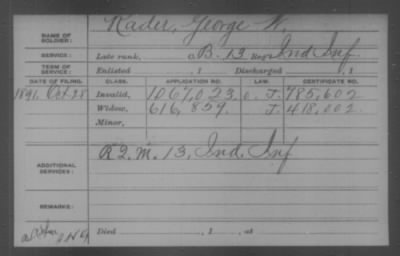 NAME OF SOLDIER: Rader, George W.
SERVICE: Late rank, Co B. 13 Reg't Ind Inf
TERM OF SERVICE: Enlisted , 1 Discharged , 1
DATE OF FILING. CLASS. APPLICATION NO. LAW. CERTIFICATE NO.
1891. Oct 28 Invalid, 1067,023. J. 785,602
Widow, 616,859. J. 418,002
Minor,
ADDITIONAL SERVICES: R Q. M. 13, Ind. Inf
REMARKS:
Died , 1 , at